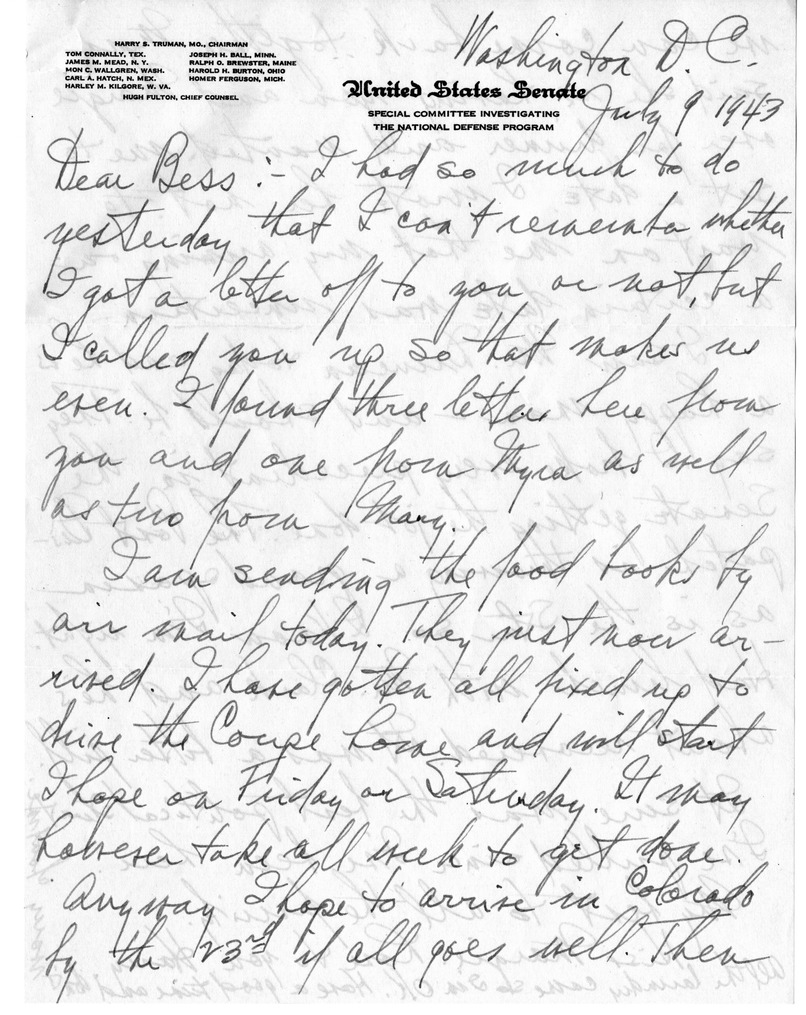 HARRY S. TRUMAN, MO., CHAIRMAN
TOM CONNALLY, TEX. JOSEPH H. BALL, MINN.
JAMES M. MEAD, N. Y. RALPH O. BREWSTER, MAINE
MON C. WALLGREN, WASH. HAROLD H. BURTON, OHIO
CARL A. HATCH, N. MEX. HOMER FERGUSON, MICH.
HARLEY M. KILGORE, W. VA.
HUGH FULTON, CHIEF COUNSEL
Washington D.C.
United States Senate
SPECIAL COMMITTEE INVESTIGATING
THE NATIONAL DEFENSE PROGRAM
July 9 1943
Dear Bess:- I had so much to do
yesterday that I can't remember whether
I got a letter off to you or not, but
I called you up so that makes us
even. I found three letters here from
you and one from Myra as well
as two from Mary.
I am sending the food books by
air mail today. They just now ar-
rived. I have gotten all fixed up to
drive the Coupe home and will start
I hope on Friday or Saturday. It may
however take all week to get done.
Anyway I hope to arrive in Colorado
by the 23rd if all goes well. Then